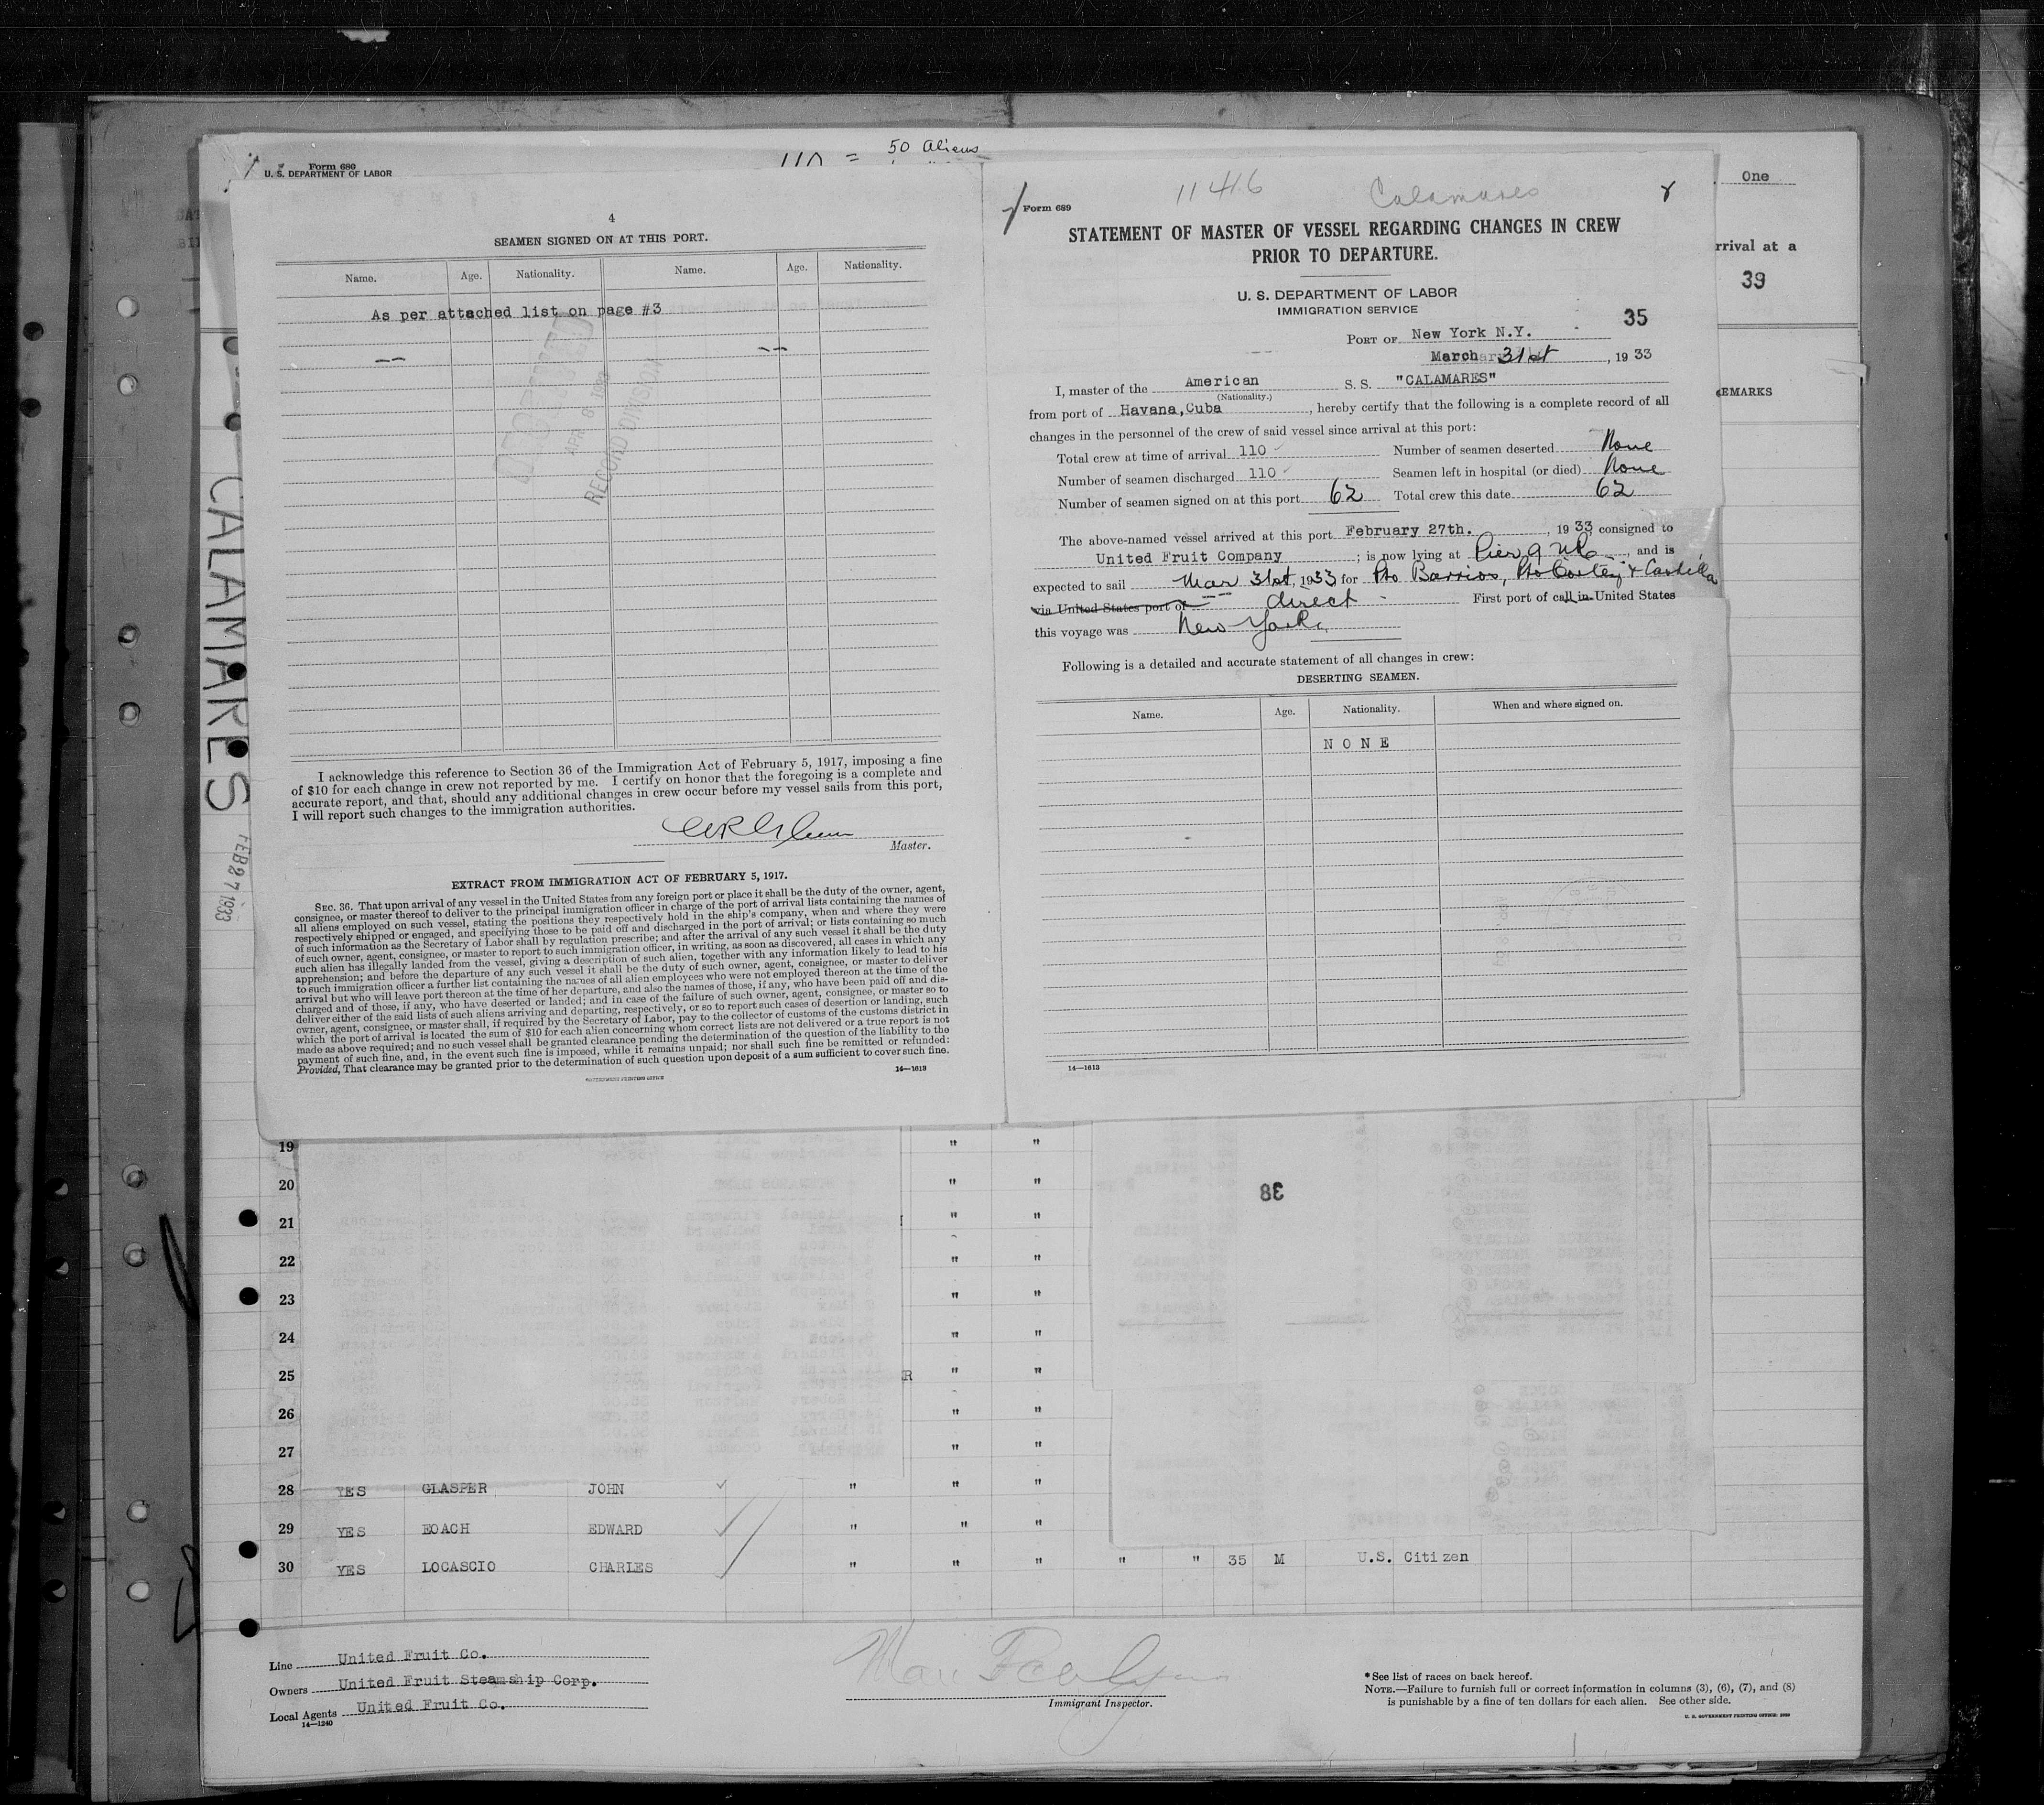 Form 680
U. S. DEPARTMENT OF LABOR
110 = 50 Aliens
4
SEAMEN SIGNED ON AT THIS PORT.
Name. Age. Nationality. Name. Age. Nationality.
As per attached list on page #3
-- --
APR 6 1933
RECORD DIVISION
I acknowledge this reference to Section 36 of the Immigration Act of February 5, 1917, imposing a fine
of $10 for each change in crew not reported by me. I certify on honor that the foregoing is a complete and
accurate report, and that, should any additional changes in crew occur before my vessel sails from this port,
I will report such changes to the immigration authorities.
Master.
EXTRACT FROM IMMIGRATION ACT OF FEBRUARY 5, 1917.
SEC. 36. That upon arrival of any vessel in the United States from any foreign port or place it shall be the duty of the owner, agent,
consignee, or master thereof to deliver to the principal immigration officer in charge of the port of arrival lists containing the names of
all aliens employed on such vessel, stating the positions they respectively hold in the ship's company, when and where they were
respectively shipped or engaged, and specifying those to be paid off and discharged in the port of arrival; or lists containing so much
of such information as the Secretary of Labor shall by regulation prescribe; and after the arrival of any such vessel it shall be the duty
of such owner, agent, consignee, or master to report to such immigration officer, in writing, as soon as discovered, all cases in which any
such alien has illegally landed from the vessel, giving a description of such alien, together with any information likely to lead to his
apprehension; and before the departure of any such vessel it shall be the duty of such owner, agent, consignee, or master to deliver
to such immigration officer a further list containing the names of all alien employees who were not employed thereon at the time of the
arrival but who will leave port thereon at the time of her departure, and also the names of those, if any, who have been paid off and dis-
charged and of those, if any, who have deserted or landed; and in case of the failure of such owner, agent, consignee, or master so to
deliver either of the said lists of such aliens arriving and departing, respectively, or so to report such cases of desertion or landing, such
owner, agent, consignee, or master shall, if required by the Secretary of Labor, pay to the collector of customs of the customs district in
which the port of arrival is located the sum of $10 for each alien concerning whom correct lists are not delivered or a true report is not
made as above required; and no such vessel shall be granted clearance pending the determination of the question of the liability to the
payment of such fine, and, in the event such fine is imposed, while it remains unpaid; nor shall such fine be remitted or refunded:
Provided, That clearance may be granted prior to the determination of such question upon deposit of a sum sufficient to cover such fine.
GOVERNMENT PRINTING OFFICE 14—1613
11416 Calamares
Form 689
STATEMENT OF MASTER OF VESSEL REGARDING CHANGES IN CREW
PRIOR TO DEPARTURE.
U. S. DEPARTMENT OF LABOR
IMMIGRATION SERVICE
35
PORT OF New York N.Y.
March 31st, 1933
I, master of the American S. S. "CALAMARES"
(Nationality.)
from port of Havana,Cuba, hereby certify that the following is a complete record of all
changes in the personnel of the crew of said vessel since arrival at this port:
Total crew at time of arrival 110 Number of seamen deserted None
Number of seamen discharged 110 Seamen left in hospital (or died) None
Number of seamen signed on at this port 62 Total crew this date 62
The above-named vessel arrived at this port February 27th., 1933, consigned to
United Fruit Company; is now lying at Pier 9 NR, and is
expected to sail Mar 31st, 1933 for Pto Barrios, Pto Cortez & Castilla
via United States port of direct - First port of call in United States
this voyage was New York
Following is a detailed and accurate statement of all changes in crew:
DESERTING SEAMEN.
Name. Age. Nationality. When and where signed on.
NONE
14—1613
One
rrival at a
39
EMARKS
CALAMARES
FEB 27 1933
38
19 " "
20 " "
21 " "
22 " "
23 " "
24 " "
25 R " "
26 " "
27 " "
28 YES GLASPER JOHN " " "
29 YES EOACH EDWARD " " "
30 YES LOCASCIO CHARLES " " " " " 35 M U.S. Citizen
Line United Fruit Co.
Owners United Fruit Steamship Corp.
Local Agents United Fruit Co.
14—1240
Immigrant Inspector.
*See list of races on back hereof.
NOTE.—Failure to furnish full or correct information in columns (3), (6), (7), and (8)
is punishable by a fine of ten dollars for each alien. See other side.